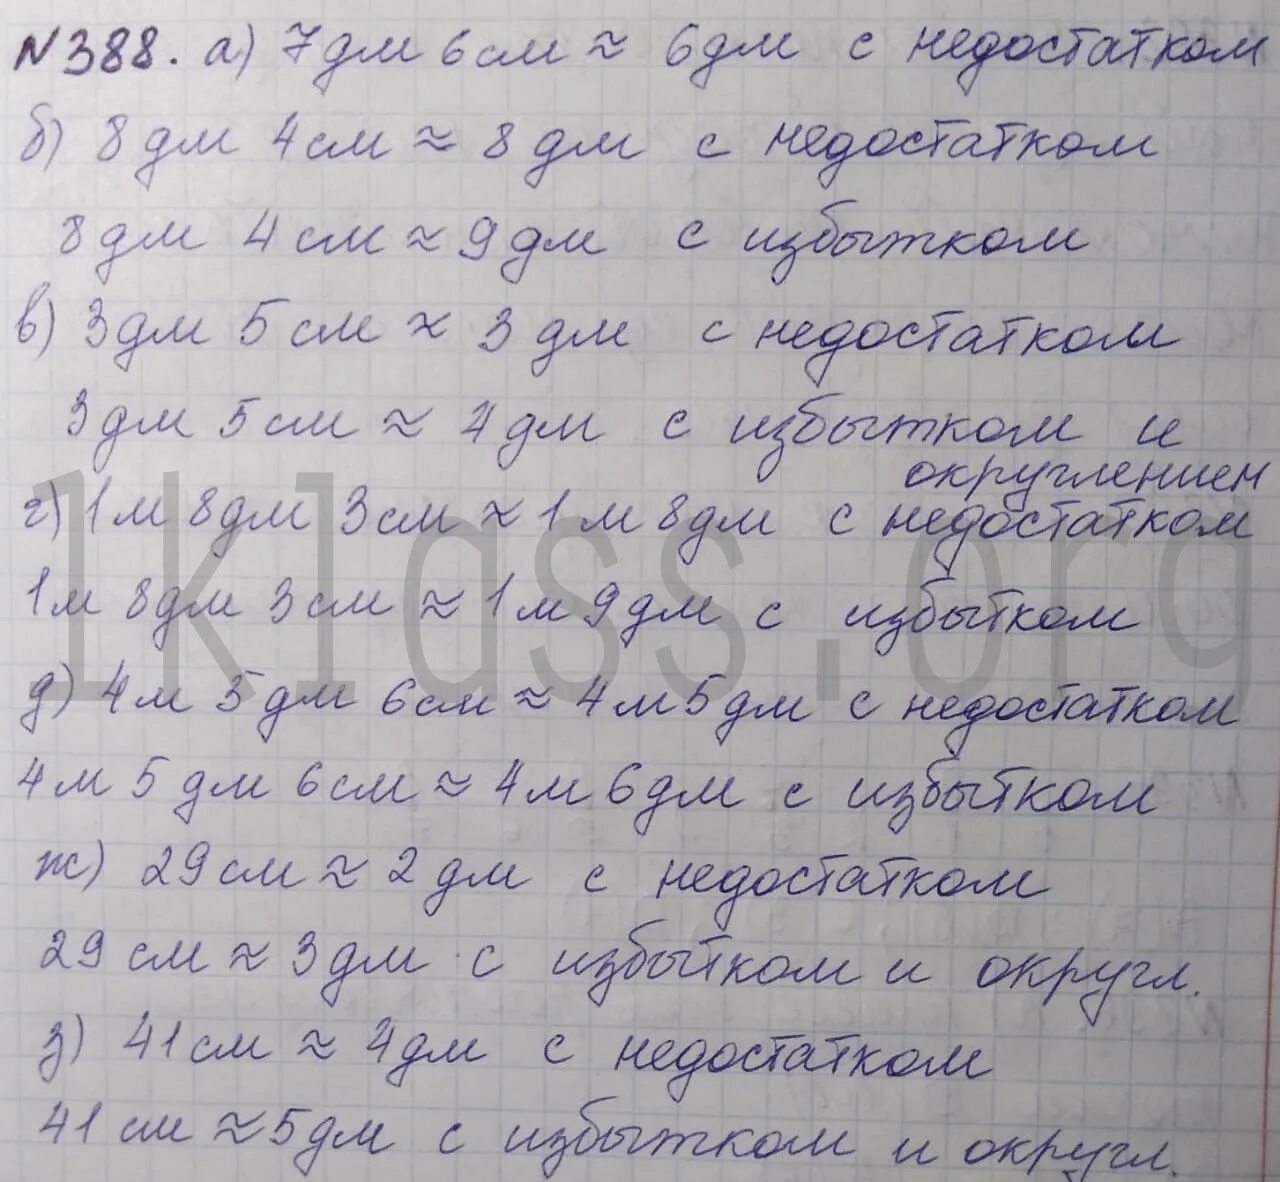 №388. а) 7дм 6см ≈ 6дм с недостатком
б) 8дм 4см ≈ 8дм с недостатком
8дм 4см ≈ 9дм с избытком
в) 3дм 5см ≈ 3дм с недостатком
3дм 5см ≈ 4дм с избытком и
округлением
г) 1м 8дм 3см ≈ 1м 8дм с недостатком
1м 8дм 3см ≈ 1м 9дм с избытком
д) 4м 5дм 6см ≈ 4м 5дм с недостатком
4м 5дм 6см ≈ 4м 6дм с избытком
ж) 29см ≈ 2дм с недостатком
29см ≈ 3дм с избытком и округл.
з) 41см ≈ 4дм с недостатком
41см ≈ 5дм с избытком и округл.
1klass.org